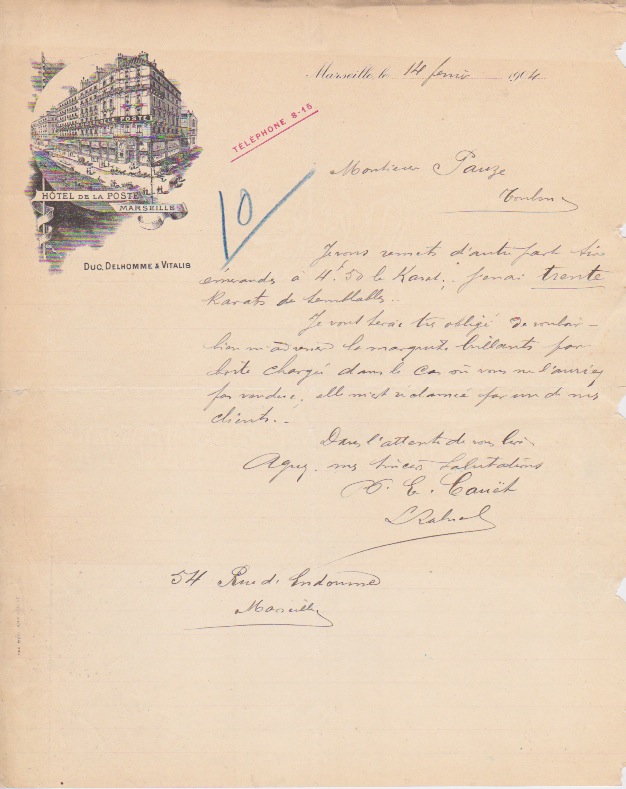 Marseille, le 14 fevrier 1904
TÉLÉPHONE 8-15
HÔTEL DE LA POSTE
MARSEILLE
DUC, DELHOMME & VITALIS
10
Monsieur Pauze
Toulon
Je vous remets d'autre part
émeraudes à 4.50 le Karat; j'en ai trente
Karats de semblables.
Je vous serais très obligé de vouloir
bien m'adresser la marguerite brillants par
boite chargé dans le cas où vous ne l'auriez
pas vendue, elle m'est réclamée par un de mes
clients.
Dans l'attente de vous lire
Agréez mes sincères salutations
P. E. Cauët
54 Rue d'Endoume
Marseille